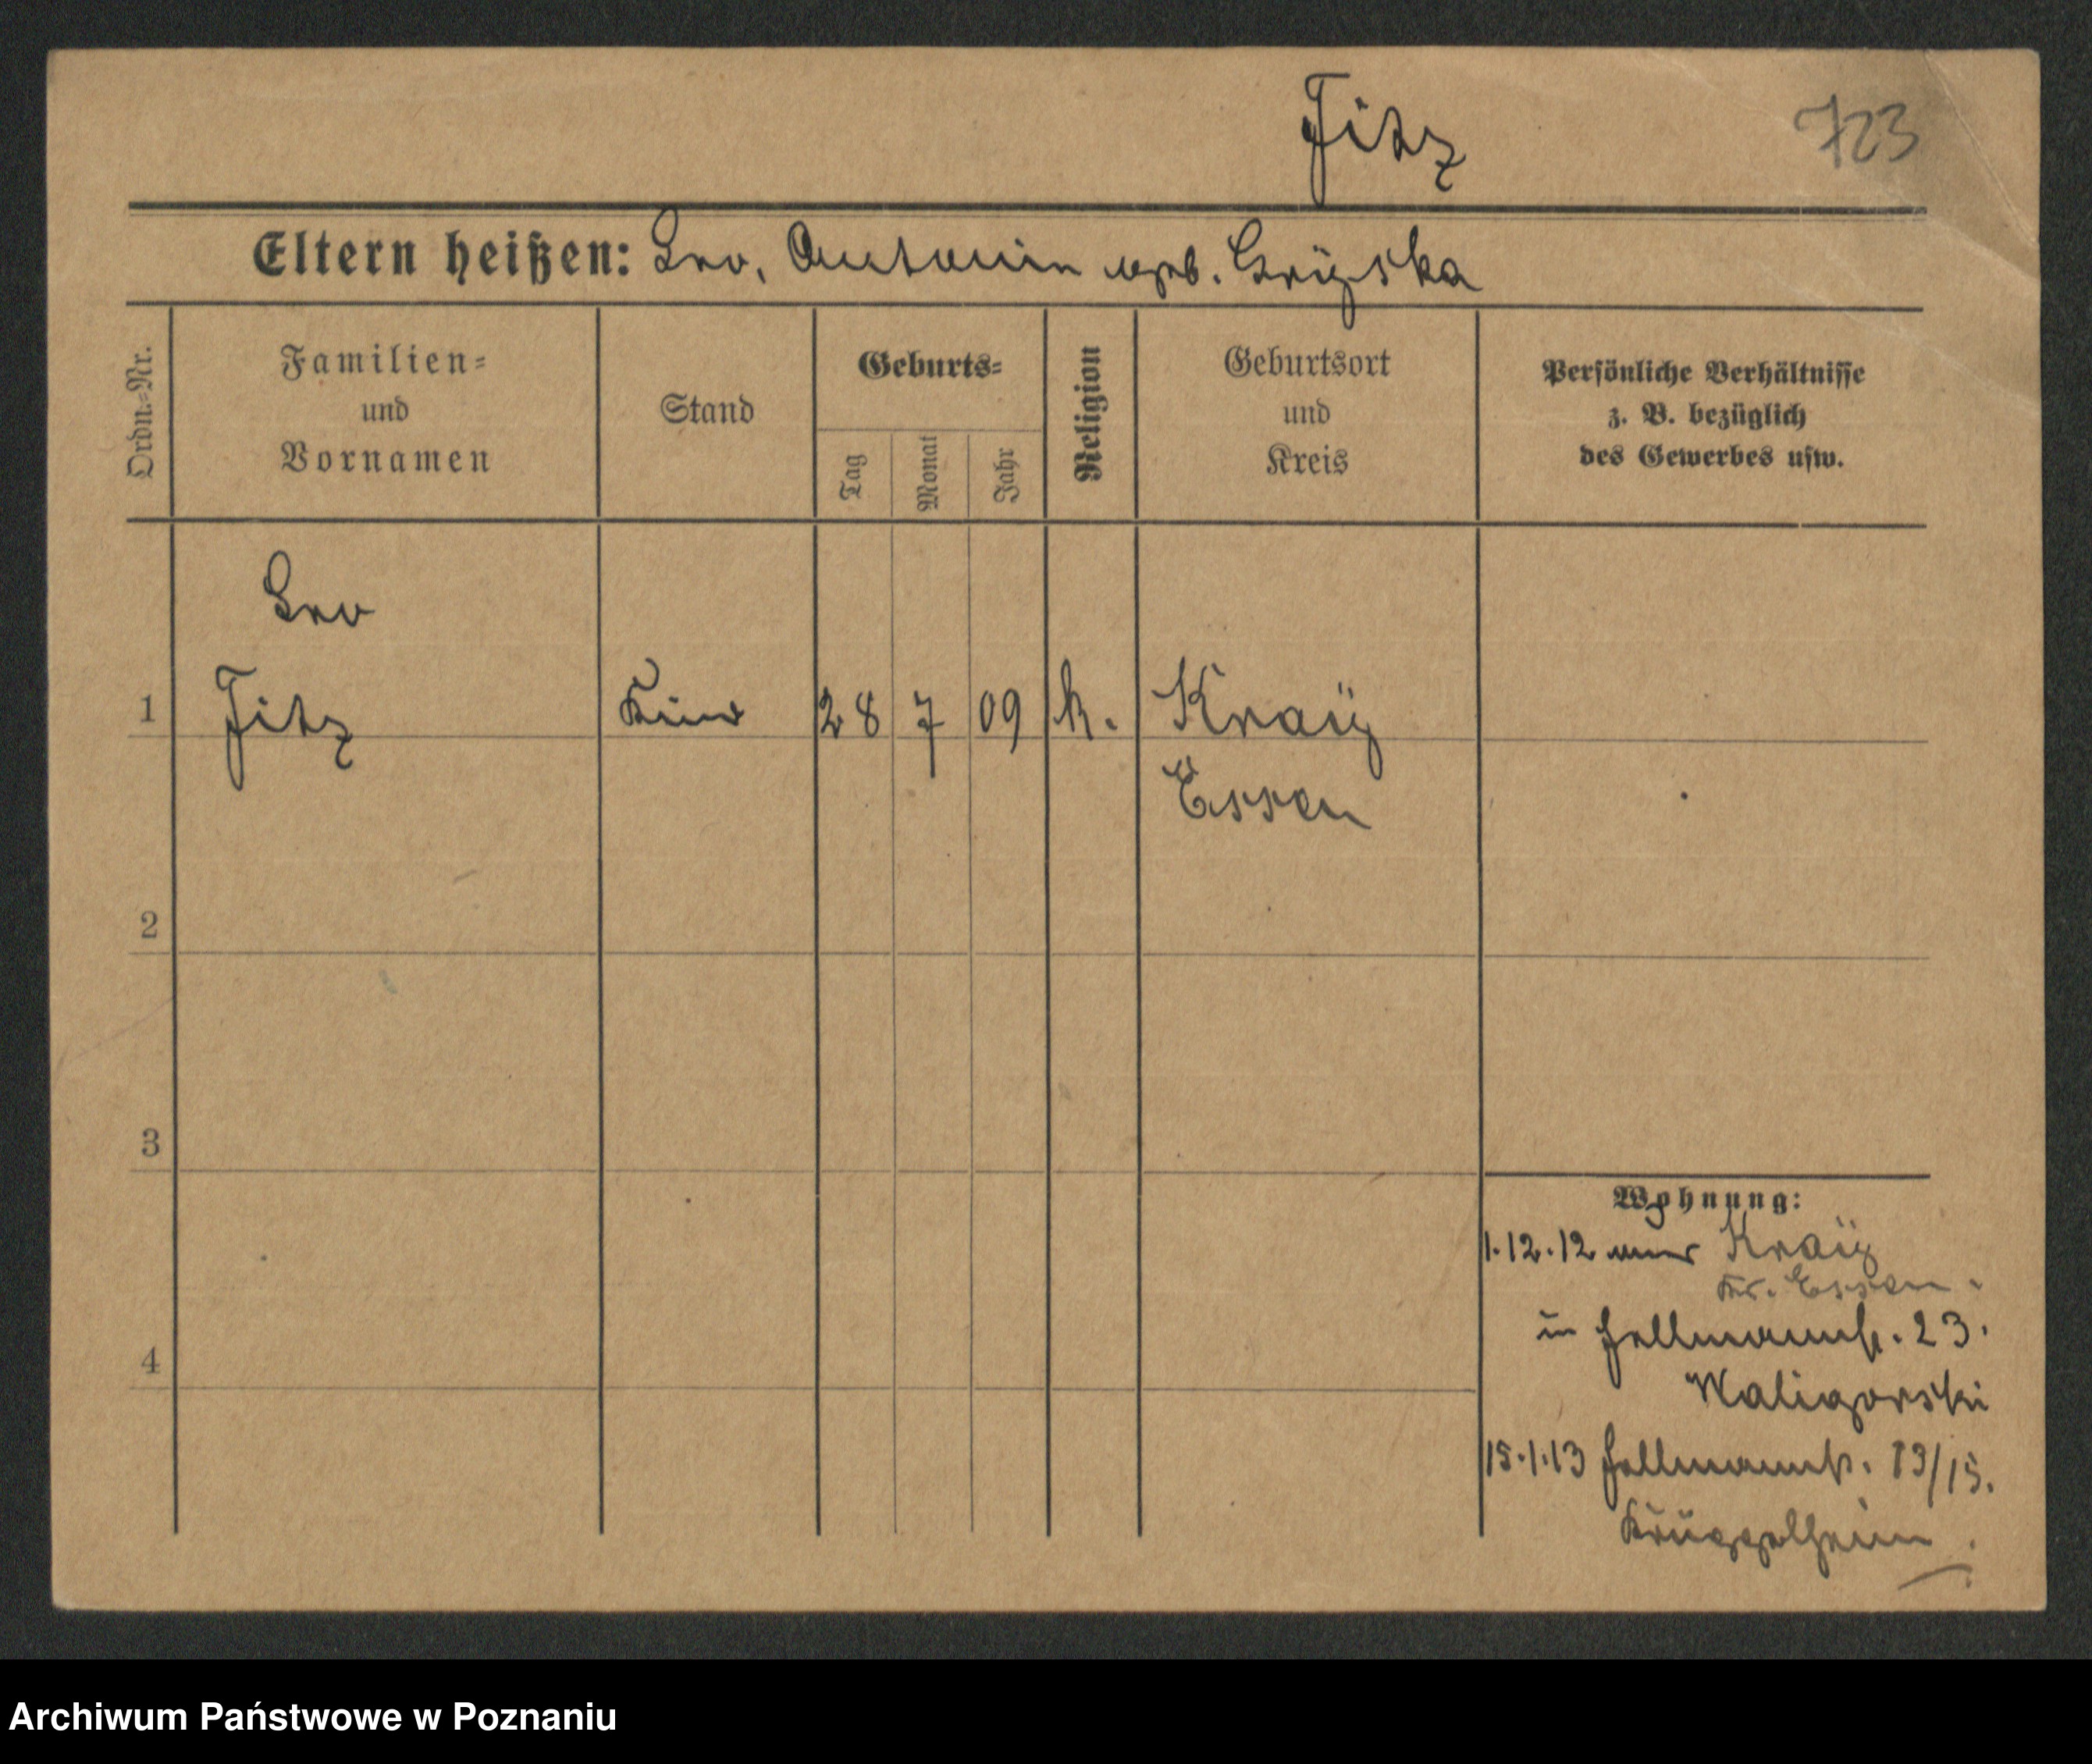 Fitz
723
Eltern heißen: Leo, Antonin geb. Gryska
Ordn.-Nr.
Familien-
und
Vornamen
Stand
Geburts-
Tag
Monat
Jahr
Religion
Geburtsort
und
Kreis
Persönliche Verhältnisse
z. B. bezüglich
des Gewerbes usw.
Leo
1 Fitz Kind 28 7 09 k. Kray
Essen
2
3
4
Wohnung:
1.12.12 Kray
Kr. Essen.
in 23.
Maligorski
15.1.13 13/15.
Archiwum Państwowe w Poznaniu